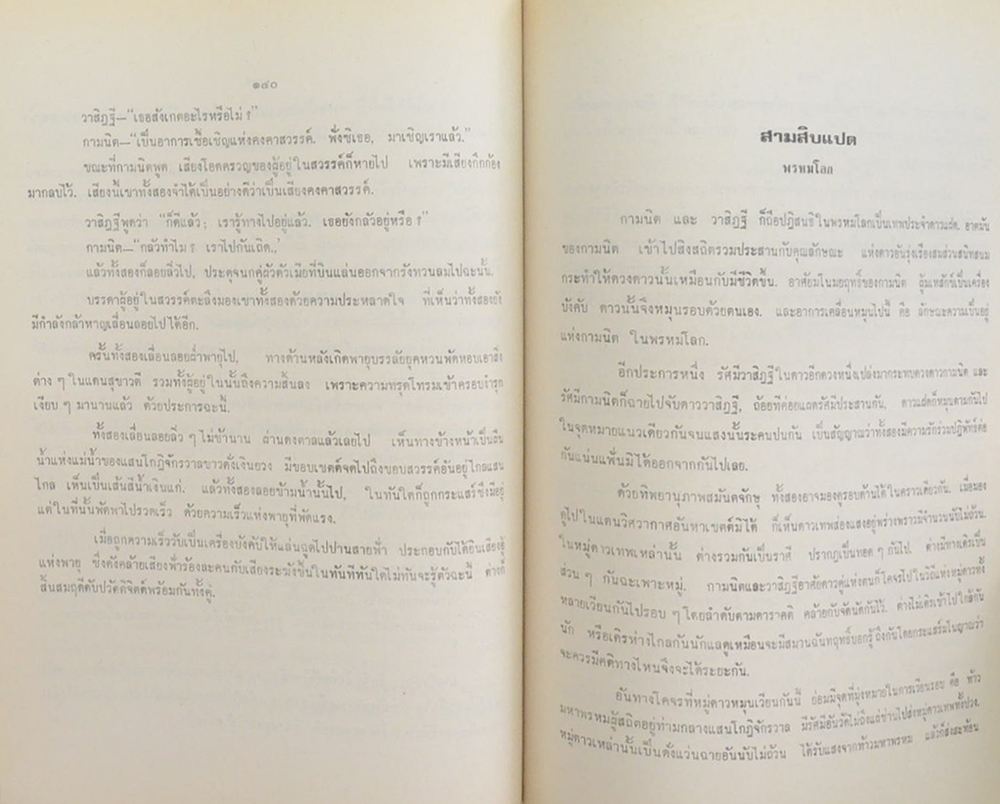 ๑๘๐
วาสิฏฐี—"เธอสังเกตอะไรหรือไม่ ?"
กามนิต—"เป็นอาการเชื้อเชิญแห่งคงคาสวรรค์. ฟังซิเธอ, มาเชิญเราแล้ว."
ขณะที่กามนิตพูด เสียงโอดครวญของผู้อยู่ในสวรรค์ก็หายไป เพราะมีเสียงกึกก้อง
มากลบไว้. เสียงนี้เขาทั้งสองจำได้เป็นอย่างดีว่าเป็นเสียงคงคาสวรรค์.
วาสิฏฐีพูดว่า "ก็ดีแล้ว; เรารู้ทางไปอยู่แล้ว. เธอยังกลัวอยู่หรือ ?"
กามนิต—"กลัวทำไม ? เราไปกันเถิด.'
แล้วทั้งสองก็ลอยลิ่วไป, ประดุจนกคู่ผัวตัวเมียที่บินแล่นออกจากรังทวนลมไปฉะนั้น.
บรรดาผู้อยู่ในสวรรค์ตะลึงมองเขาทั้งสองด้วยความประหลาดใจ ที่เห็นว่าทั้งสองยัง
มีกำลังกล้าหาญเลื่อนลอยไปได้อีก.
ครั้นทั้งสองเลื่อนลอยฝ่าพายุไป, ทางด้านหลังเกิดพายุบรรลัยยุคหวนพัดหอบเอาสิ่ง
ต่าง ๆ ในแดนสุขาวดี รวมทั้งผู้อยู่ในนั้นถึงความสิ้นลง เพราะความทรุดโทรมเข้าครอบงำรุก
เงียบ ๆ มานานแล้ว ด้วยประการฉะนี้.
ทั้งสองเลื่อนลอยลิ่ว ๆ ไม่ช้านาน ผ่านดงตาลแล้วเลยไป เห็นทางข้างหน้าเป็นผืน
น้ำแห่งแม่น้ำของแสนโกฏิจักรวาลขาวดั่งเงินยวง มีขอบเขตต์จดไปถึงขอบสวรรค์อันอยู่ไกลแสน
ไกล เห็นเป็นเส้นสีน้ำเงินแก่. แล้วทั้งสองลอยข้ามน้ำนั้นไป, ในทันใดก็ถูกกระแสร์ซึ่งมีอยู่
แต่ในที่นั้นพัดพาไปรวดเร็ว ด้วยความเร็วแห่งพายุที่พัดแรง.
เมื่อถูกความเร็วรับเป็นเครื่องบังคับให้แล่นฉุดไปปานสายฟ้า ประกอบกับได้ยินเสียงอู้
แห่งพายุ ซึ่งดังคล้ายเสียงฟ้าร้องละคนกับเสียงระฆังขึ้นในทันทีทันใดไม่ทันจะรู้ตัวฉะนี้ ต่างก็
สิ้นสมฤดีดับปวัตติจิตต์พร้อมกันทั้งคู่.
สามสิบแปด
พรหมโลก
กามนิต และ วาสิฏฐี ก็ถือปฏิสนธิในพรหมโลกเป็นเทพประจำดาวแฝด. อาตมัน
ของกามนิต เข้าไปสิงสถิตรวมประสานกับคุณลักษณะ แห่งดาวอันรุ่งเรืองสมส่วนสนิทสนม
กระทำให้ดวงดาวนั้นเหมือนกับมีชีวิตขึ้น. อาศัยมโนมยฤทธิ์ของกามนิต ผู้มเหสักข์เป็นเครื่อง
บังคับ ดาวนั้นจึงหมุนรอบด้วยตนเอง. และอาการเคลื่อนหมุนไปนี้ คือ ลักษณะความเป็นอยู่
แห่งกามนิต ในพรหมโลก.
อีกประการหนึ่ง รัศมีวาสิฏฐีในดาวอีกดวงหนึ่งเปล่งมากระทบดวงดาวกามนิต และ
รัศมีกามนิตก็ฉายไปจับดาววาสิฏฐี, ถ้อยทีถ้อยแลกรัศมีประสานกัน. ดาวแฝดก็หมุนตามกันไป
ในจุดหมายแนวเดียวกันจนแสงนั้นระคนปนกัน เป็นสัญญาณว่าทั้งสองมีความรักร่วมปฏิพัทธ์ต่อ
กันแน่นแฟ้นมิได้ออกจากกันไปเลย.
ด้วยทิพยานุภาพสมันตจักษุ ทั้งสองอาจมองครอบด้านได้ในคราวเดียวกัน. เมื่อมอง
ดูไปในแดนวิศวากาศอันหาเขตต์มิได้ ก็เห็นดาวเทพส่องแสงอยู่พร่างพราวมีจำนวนนับไม่ถ้วน.
ในหมู่ดาวเทพเหล่านั้น ต่างรวมกันเป็นราศี ปรากฏเป็นทอด ๆ กันไป. ต่างมีทางเดิรเป็น
ส่วน ๆ กันฉะเพาะหมู่. กามนิตและวาสิฏฐีอาศัยดาวคู่แห่งตนก็โคจรไปในวิถีแห่งหมู่ดาวทั้ง
หลายเวียนกันไปรอบ ๆ โดยลำดับตามดาราคติ คล้ายกับจัดนัดกันไว้. ต่างไม่เดิรเข้าไปใกล้กัน
นัก หรือเดิรห่างไกลกันนักแลดูเหมือนจะมีสมานฉันทฤทธิ์บอกรู้ถึงกันโดยกระแสร์มโนญาณว่า
จะควรมีคติทางไหนจึงจะได้ระยะกัน.
อันทางโคจรที่หมู่ดาวหมุนเวียนกันนี้ ย่อมมีจุดที่มุ่งหมายในการเวียนรอบ คือ ท้าว
มหาพรหมผู้สถิตอยู่ท่ามกลางแสนโกฏิจักรวาล มีรัศมีอันวัดไม่ถึงแผ่ซ่านไปสู่หมู่ดาวเทพทั้งปวง.
หมู่ดาวเหล่านั้นเป็นดั่งแว่นฉายอันนับไม่ถ้วน ได้รับแสงจากท้าวมหาพรหม แล้วก็ส่งสะท้อน